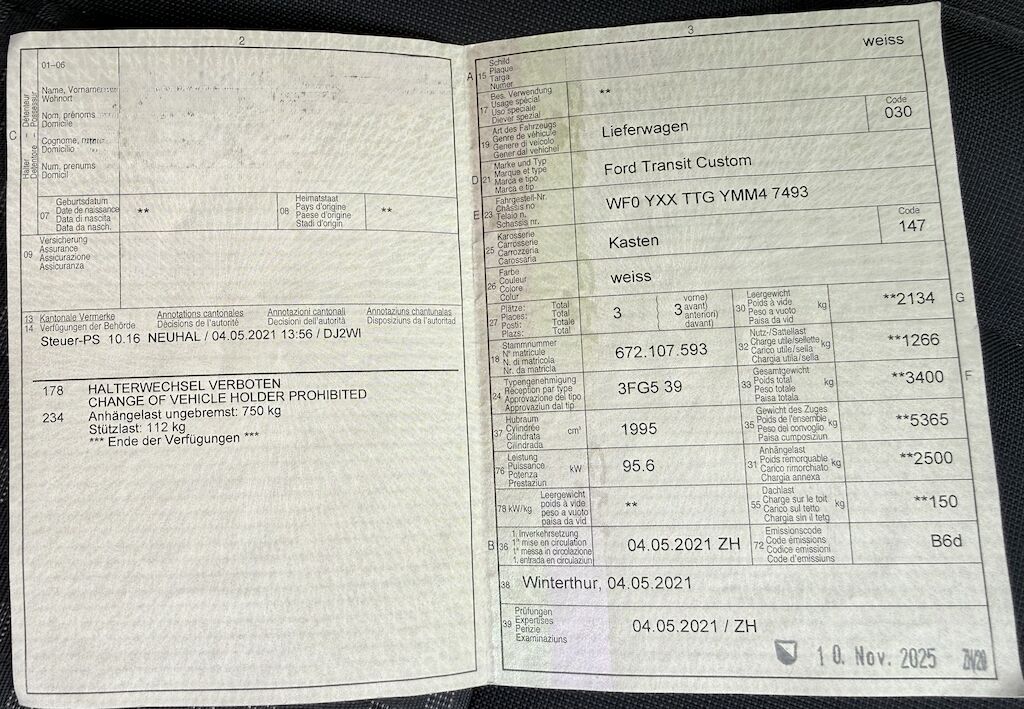 2
01–06
Name, Vornamen
Wohnort
Nom, prénoms
Domicile
Cognome,
Domicilio
Num, prenums
Domicil
C
Halter Détenteur
Detentore Possessur
07
Geburtsdatum
Date de naissance
Data di nascita
Data da nasch.
**
08
Heimatstaat
Pays d'origine
Paese d'origine
Stadi d'origin
**
09
Versicherung
Assurance
Assicurazione
Assicuranza
13 Kantonale Vermerke Annotations cantonales Annotazioni cantonali Annotaziuns chantunalas
14 Verfügungen der Behörde Décisions de l'autorité Decisioni dell'autorità Disposiziuns da l'autoritad
Steuer-PS 10.16 NEUHAL / 04.05.2021 13:56 / DJ2WI
178 HALTERWECHSEL VERBOTEN
CHANGE OF VEHICLE HOLDER PROHIBITED
234 Anhängelast ungebremst: 750 kg
Stützlast: 112 kg
*** Ende der Verfügungen ***
3
A 15
Schild
Plaque
Targa
Numer
weiss
17
Bes. Verwendung
Usage spécial
Uso speciale
Diever spezial
**
19
Art des Fahrzeugs
Genre de véhicule
Genere di veicolo
Gener dal vehichel
Lieferwagen
Code
030
D 21
Marke und Typ
Marque et type
Marca e tipo
Marca e tip
Ford Transit Custom
E 23
Fahrgestell-Nr.
Châssis no
Telaio n.
Schassis nr.
WF0 YXX TTG YMM4 7493
25
Karosserie
Carrosserie
Carrozzeria
Carossaria
Kasten
Code
147
26
Farbe
Couleur
Colore
Colur
weiss
27
Plätze: Total
Places: Total
Posti: Totale
Plazs: Total
3
( 3
vorne)
avant)
anteriori)
davant)
30
Leergewicht
Poids à vide
Peso a vuoto
Paisa da vid
kg
**2134
G
18
Stammnummer
N° matricule
N. di matricola
Nr. da matricla
672.107.593
32
Nutz-/Sattellast
Charge utile/sellette
Carico utile/sella
Chargia utila/sella
kg
**1266
24
Typengenehmigung
Réception par type
Approvazione del tipo
Approvaziun dal tip
3FG5 39
33
Gesamtgewicht
Poids total
Peso totale
Paisa totala
kg
**3400
F
37
Hubraum
Cylindrée
Cilindrata
Cilindrada
cm³
1995
35
Gewicht des Zuges
Poids de l'ensemble
Peso del convoglio
Paisa cumposiziun
kg
**5365
76
Leistung
Puissance
Potenza
Prestaziun
kW
95.6
31
Anhängelast
Poids remorquable
Carico rimorchiato
Chargia annexa
kg
**2500
78 kW/kg
Leergewicht
poids à vide
peso a vuoto
paisa da vid
**
55
Dachlast
Charge sur le toit
Carico sul tetto
Chargia sin il tetg
kg
**150
B 36
1. Inverkehrsetzung
1re mise en circulation
1a messa in circolazione
1. entrada en circulaziun
04.05.2021 ZH
72
Emissionscode
Code émissions
Codice emissioni
Code d'emissiuns
B6d
38
Winterthur, 04.05.2021
39
Prüfungen
Expertises
Perizie
Examinaziuns
04.05.2021 / ZH
10. Nov. 2025